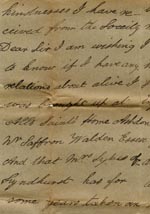 kindnesses I have re
ceived from the Society
Dear Sir I am wishing
to know if I have any
relations about alive I
was brought up at
Home Ashdon
Nr Saffron Walden Essex
And that Mrs Sykes of
Lyndhurst has for
some years taken an